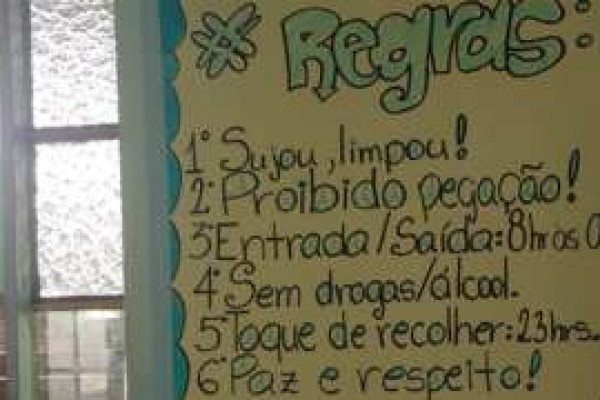 * Regras:
1° Sujou, limpou!
2° Proibido pegação!
3° Entrada/Saída: 8hr às
4° Sem drogas/álcool.
5° Toque de recolher: 23hrs.
6° Paz e respeito!